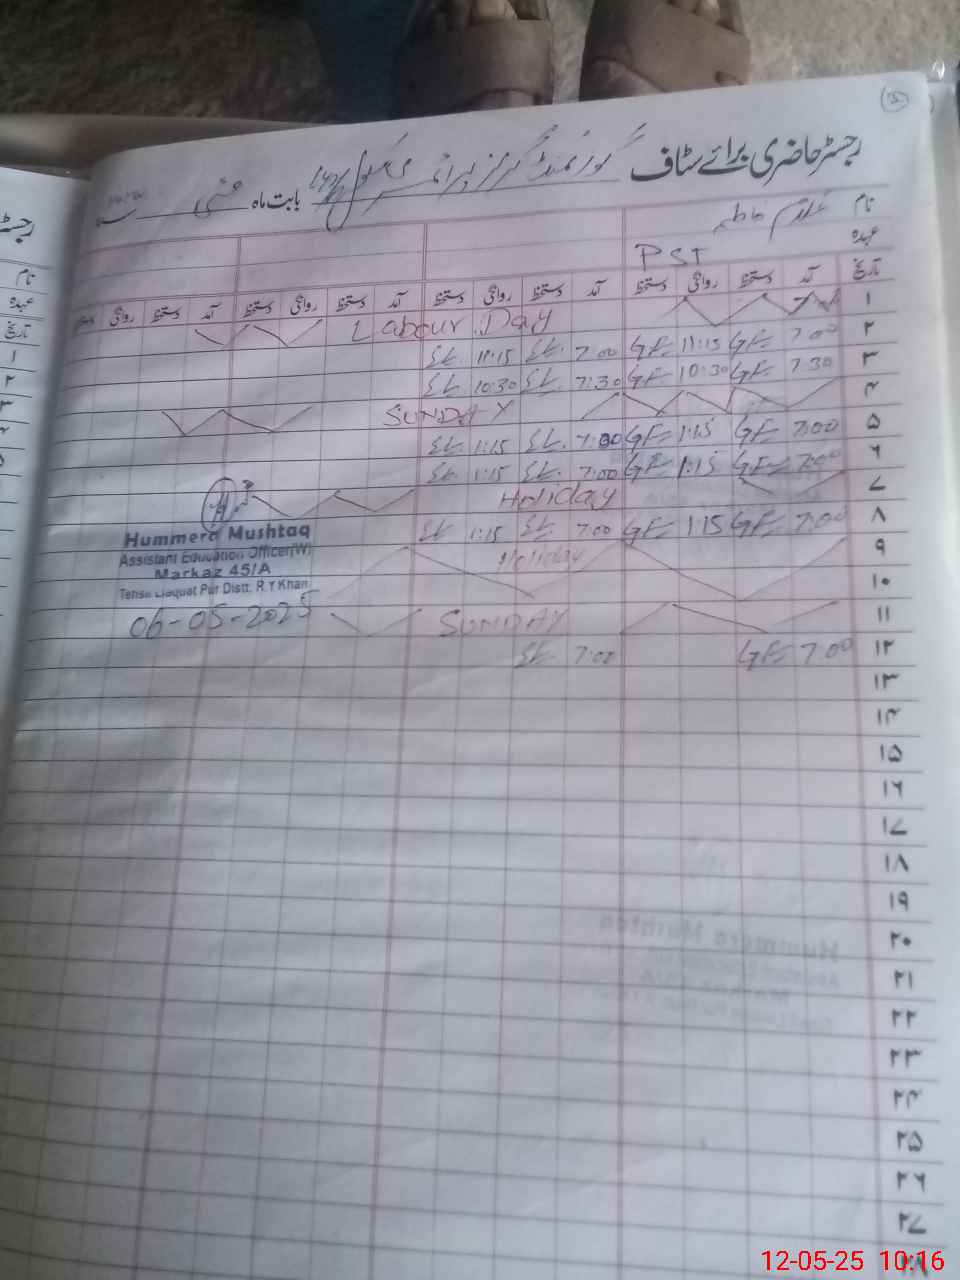 رجسٹر حاضری برائے سٹاف گورنمنٹ گرلز پرائمری سکول بابت ماہ مئی
نام غلام فاطمہ
عہدہ PST
تاریخ آمد دستخط روانگی دستخط آمد دستخط روانگی دستخط آمد دستخط روانگی دستخط آمد دستخط روانگی دستخط
۱ Labour Day
۲ 7:00 GF 11:15 GF 7:00 11:15
۳ 7:30 GF 10:30 GF 7:30 10:30
۴ SUNDAY
۵ 7:00 GF 1:15 GF 7:00 1:15
۶ 7:00 GF 1:15 GF 7:00 1:15
۷ Holiday
۸ 7:00 GF 1:15 GF 7:00 1:15
۹ Holiday
۱۰
۱۱ SUNDAY
۱۲ 7:00 GF 7:00
۱۳
۱۴
۱۵
۱۶
۱۷
۱۸
۱۹
۲۰
۲۱
۲۲
۲۳
۲۴
۲۵
۲۶
۲۷
۲۸
Hummera Mushtaq
Assistant Education Officer(W)
Markaz 45/A
Tehsil Liaquat Pur Distt. R.Y.Khan
06-05-2025
نام
عہدہ
تاریخ
۱
۲
۳
۴
۵
12-05-25 10:16